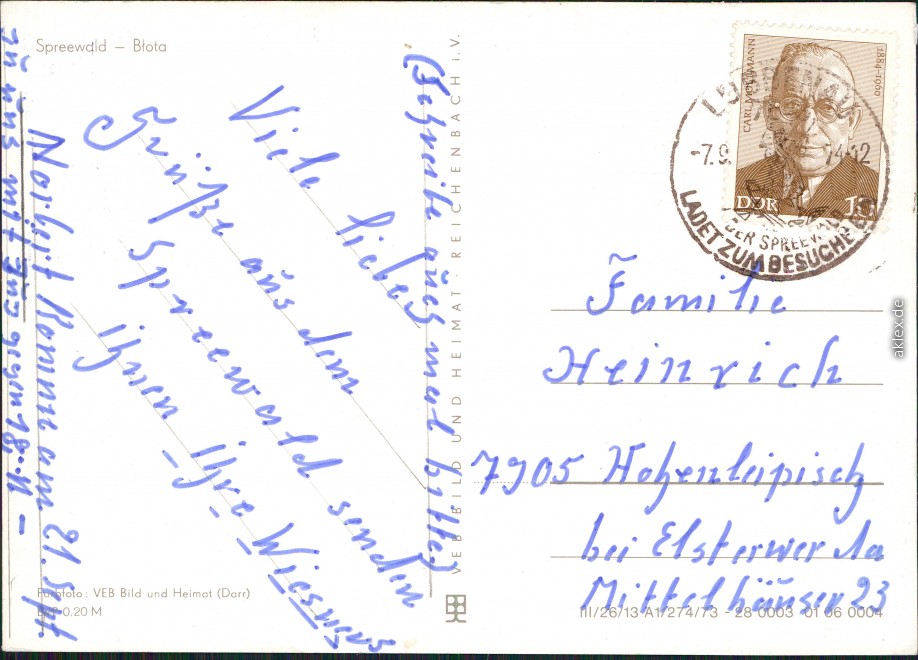 Spreewald – Błota
Viele liebe
Grüße aus dem
Spreewald senden
ihnen ihre Wiesners
(Schreibt auch mal bitte)
Norbert kommt am 21. Sept.
zu uns mit Zug gegen 18
VEB BILD UND HEIMAT REICHENBACH i.V.
Farbfoto: VEB Bild und Heimat (Darr)
0.20 M
CARL MOLTMANN
1884–1960
DDR 10
-7.9.
74-12
DER SPREEWALD
LADET ZUM BESUCHE EIN
Familie
Heinrich
7905 Hohenleipisch
bei Elsterwerda
Mittelhäuser 23
III/26/13 A1/274/73 – 28 0003 01 06 0004
aklex.de